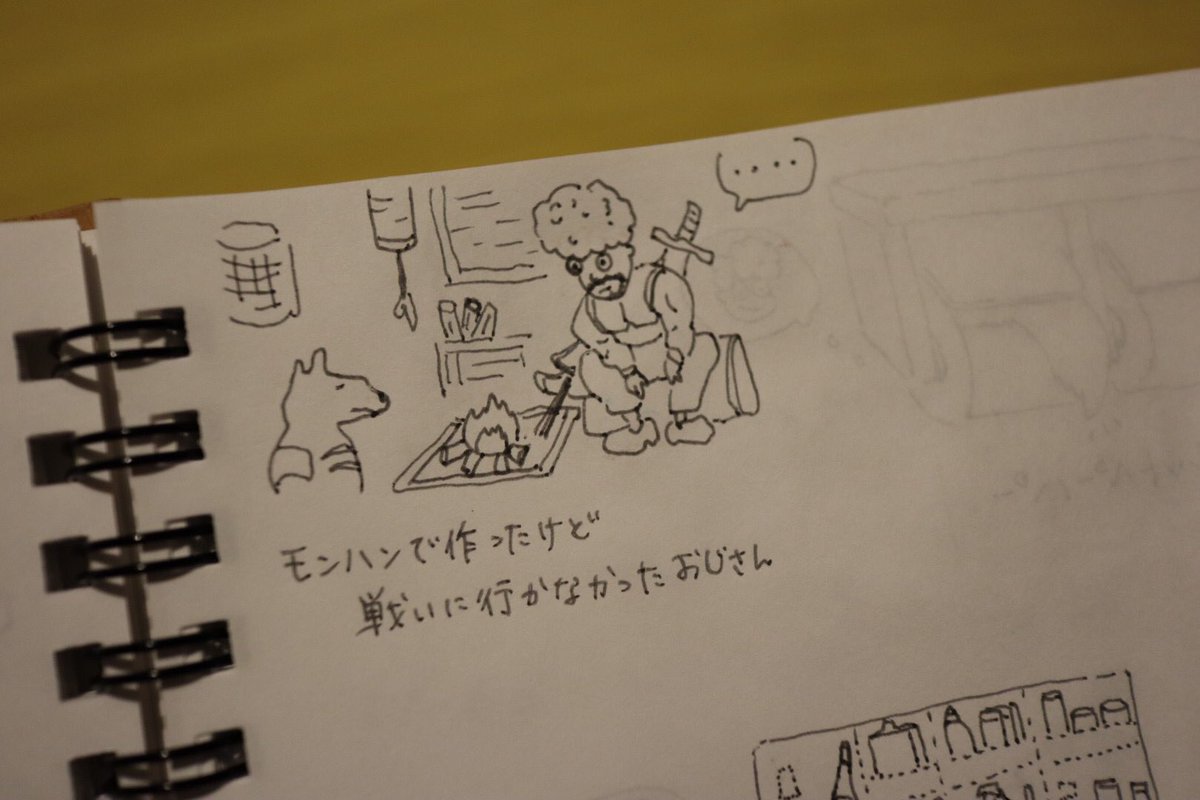 ‥‥
モンハンで作ったけど
戦いに行かなかったおじさん